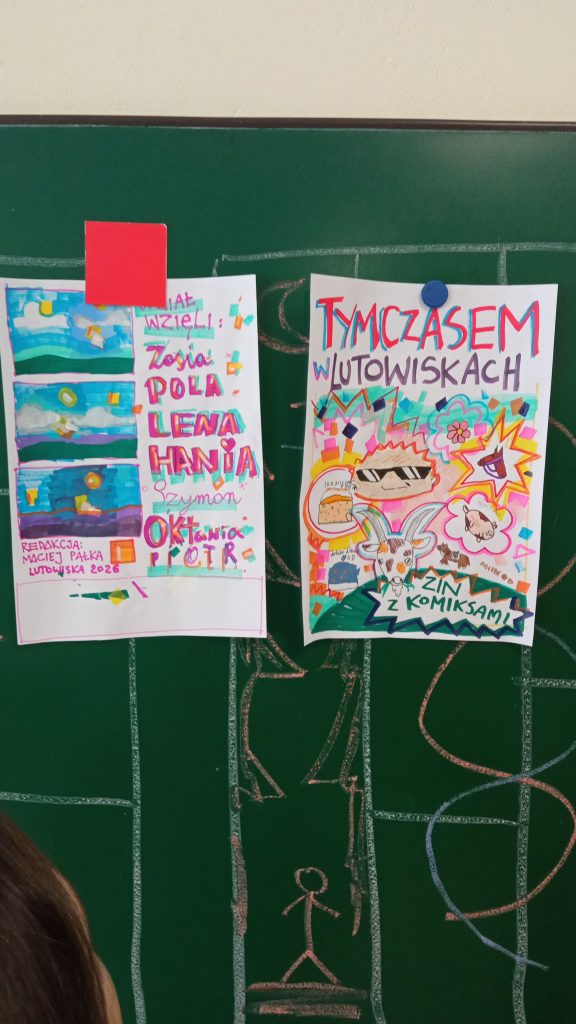 UDZIAŁ
WZIĘLI:
Zosia
POLA
LENA
HANIA
Szymon
OKtawia
PIOTR
REDAKCJA:
MACIEJ PAŁKA
LUTOWISKA 2026
TYMCZASEM
W LUTOWISKACH
ZIN
Z KOMIKSAMI!